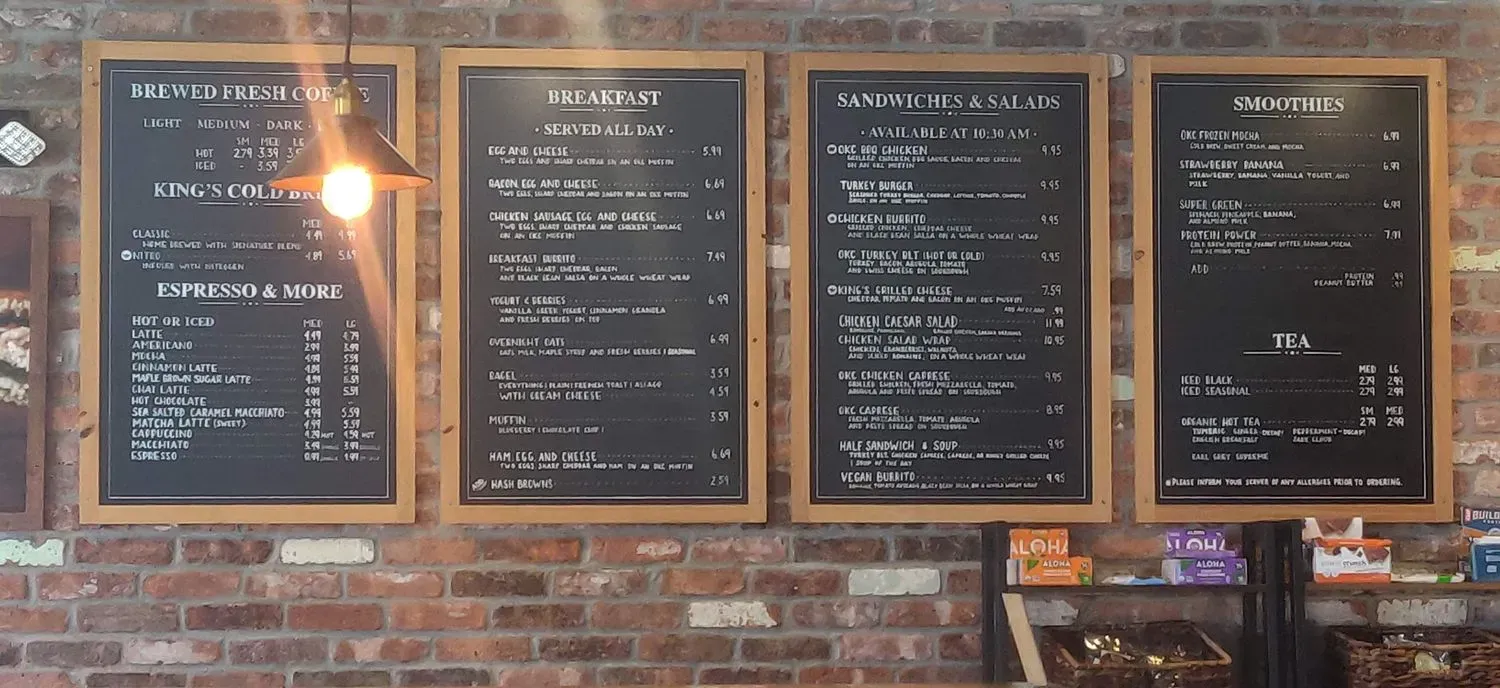 BREWED FRESH COFFEE
LIGHT · MEDIUM · DARK ·
SM MED LG
HOT 2.79 3.39
ICED - 3.59
KING'S COLD
MED
CLASSIC 4.49 4.99
HOME BREWED WITH SIGNATURE BLEND
NITRO 4.89 5.69
INFUSED WITH NITROGEN
ESPRESSO & MORE
HOT OR ICED MED LG
LATTE 4.79
AMERICANO
MOCHA 4.99 5.59
CINNAMON LATTE 5.59
MAPLE BROWN SUGAR LATTE 4.99 5.59
CHAI LATTE 4.99 5.59
HOT CHOCOLATE
SEA SALTED CARAMEL MACCHIATO 4.99 5.59
MATCHA LATTE (SWEET) 4.99 5.59
CAPPUCCINO HOT HOT
MACCHIATO
ESPRESSO
BREAKFAST
· SERVED ALL DAY ·
EGG AND CHEESE 5.99
TWO EGGS AND SHARP CHEDDAR ON AN OKC MUFFIN
BACON, EGG AND CHEESE 6.69
TWO EGGS, SHARP CHEDDAR AND BACON ON AN OKC MUFFIN
CHICKEN SAUSAGE, EGG AND CHEESE 6.69
TWO EGGS, SHARP CHEDDAR AND CHICKEN SAUSAGE
ON AN OKC MUFFIN
BREAKFAST BURRITO 7.49
TWO EGGS, SHARP CHEDDAR, BACON
AND BLACK BEAN SALSA ON A WHOLE WHEAT WRAP
YOGURT & BERRIES 6.99
VANILLA GREEK YOGURT, CINNAMON GRANOLA
AND FRESH BERRIES ON TOP
OVERNIGHT OATS 6.99
OATS, MILK, MAPLE SYRUP AND FRESH BERRIES | SEASONAL
BAGEL 3.59
EVERYTHING | PLAIN | FRENCH TOAST | ASIAGO
WITH CREAM CHEESE 4.59
MUFFIN 3.59
BLUEBERRY | CHOCOLATE CHIP |
HAM, EGG AND CHEESE 6.69
TWO EGGS, SHARP CHEDDAR AND HAM ON AN OKC MUFFIN
HASH BROWNS 2.59
SANDWICHES & SALADS
· AVAILABLE AT 10:30 AM ·
OKC BBQ CHICKEN 9.95
GRILLED CHICKEN, BBQ SAUCE, BACON AND CHEDDAR
ON AN OKC MUFFIN
TURKEY BURGER 9.95
SEASONED TURKEY BURGER, CHEDDAR, LETTUCE, TOMATO, CHIPOTLE
ON AN OKC MUFFIN
CHICKEN BURRITO 9.95
GRILLED CHICKEN, CHEDDAR CHEESE
AND BLACK BEAN SALSA ON A WHOLE WHEAT WRAP
OKC TURKEY BLT (HOT OR COLD) 9.95
TURKEY, BACON, ARUGULA, TOMATO,
AND SWISS CHEESE ON SOURDOUGH
KING'S GRILLED CHEESE 7.59
CHEDDAR, TOMATO AND BACON ON AN OKC MUFFIN
ADD AVOCADO .99
CHICKEN CAESAR SALAD 11.99
ROMAINE, PARMESAN, GRILLED CHICKEN, CAESAR DRESSING
CHICKEN SALAD WRAP 10.95
CHICKEN, CRANBERRIES, WALNUTS,
AND SLICED ROMAINE, ON A WHOLE WHEAT WRAP
OKC CHICKEN CAPRESE 9.95
GRILLED CHICKEN, FRESH MOZZARELLA, TOMATO,
ARUGULA AND PESTO SPREAD ON SOURDOUGH
OKC CAPRESE 8.95
FRESH MOZZARELLA, TOMATO, ARUGULA
AND PESTO SPREAD ON SOURDOUGH
HALF SANDWICH & SOUP 9.95
TURKEY BLT, CHICKEN CAPRESE, CAPRESE, OR KING'S GRILLED CHEESE
| SOUP OF THE DAY
VEGAN BURRITO 9.95
ROMAINE, TOMATO, AVOCADO, BLACK BEAN SALSA ON A WHOLE WHEAT WRAP
SMOOTHIES
OKC FROZEN MOCHA 6.99
COLD BREW, SWEET CREAM, AND MOCHA
STRAWBERRY BANANA 6.99
STRAWBERRY, BANANA, VANILLA YOGURT, AND
MILK
SUPER GREEN 6.99
SPINACH, PINEAPPLE, BANANA,
AND ALMOND MILK
PROTEIN POWER 7.99
COLD BREW, PROTEIN, PEANUT BUTTER, BANANA, MOCHA,
AND ALMOND MILK
ADD
PROTEIN .99
PEANUT BUTTER .99
TEA
MED LG
ICED BLACK 2.79 2.99
ICED SEASONAL 2.79 2.99
SM MED
ORGANIC HOT TEA 2.79 2.99
TUMERIC GINGER -DECAF! PEPPERMINT -DECAF!
ENGLISH BREAKFAST JADE CLOUD
EARL GREY SUPREME
PLEASE INFORM YOUR SERVER OF ANY ALLERGIES PRIOR TO ORDERING.
ALOHA
ALOHA
ALOHA
ALOHA
BUILT